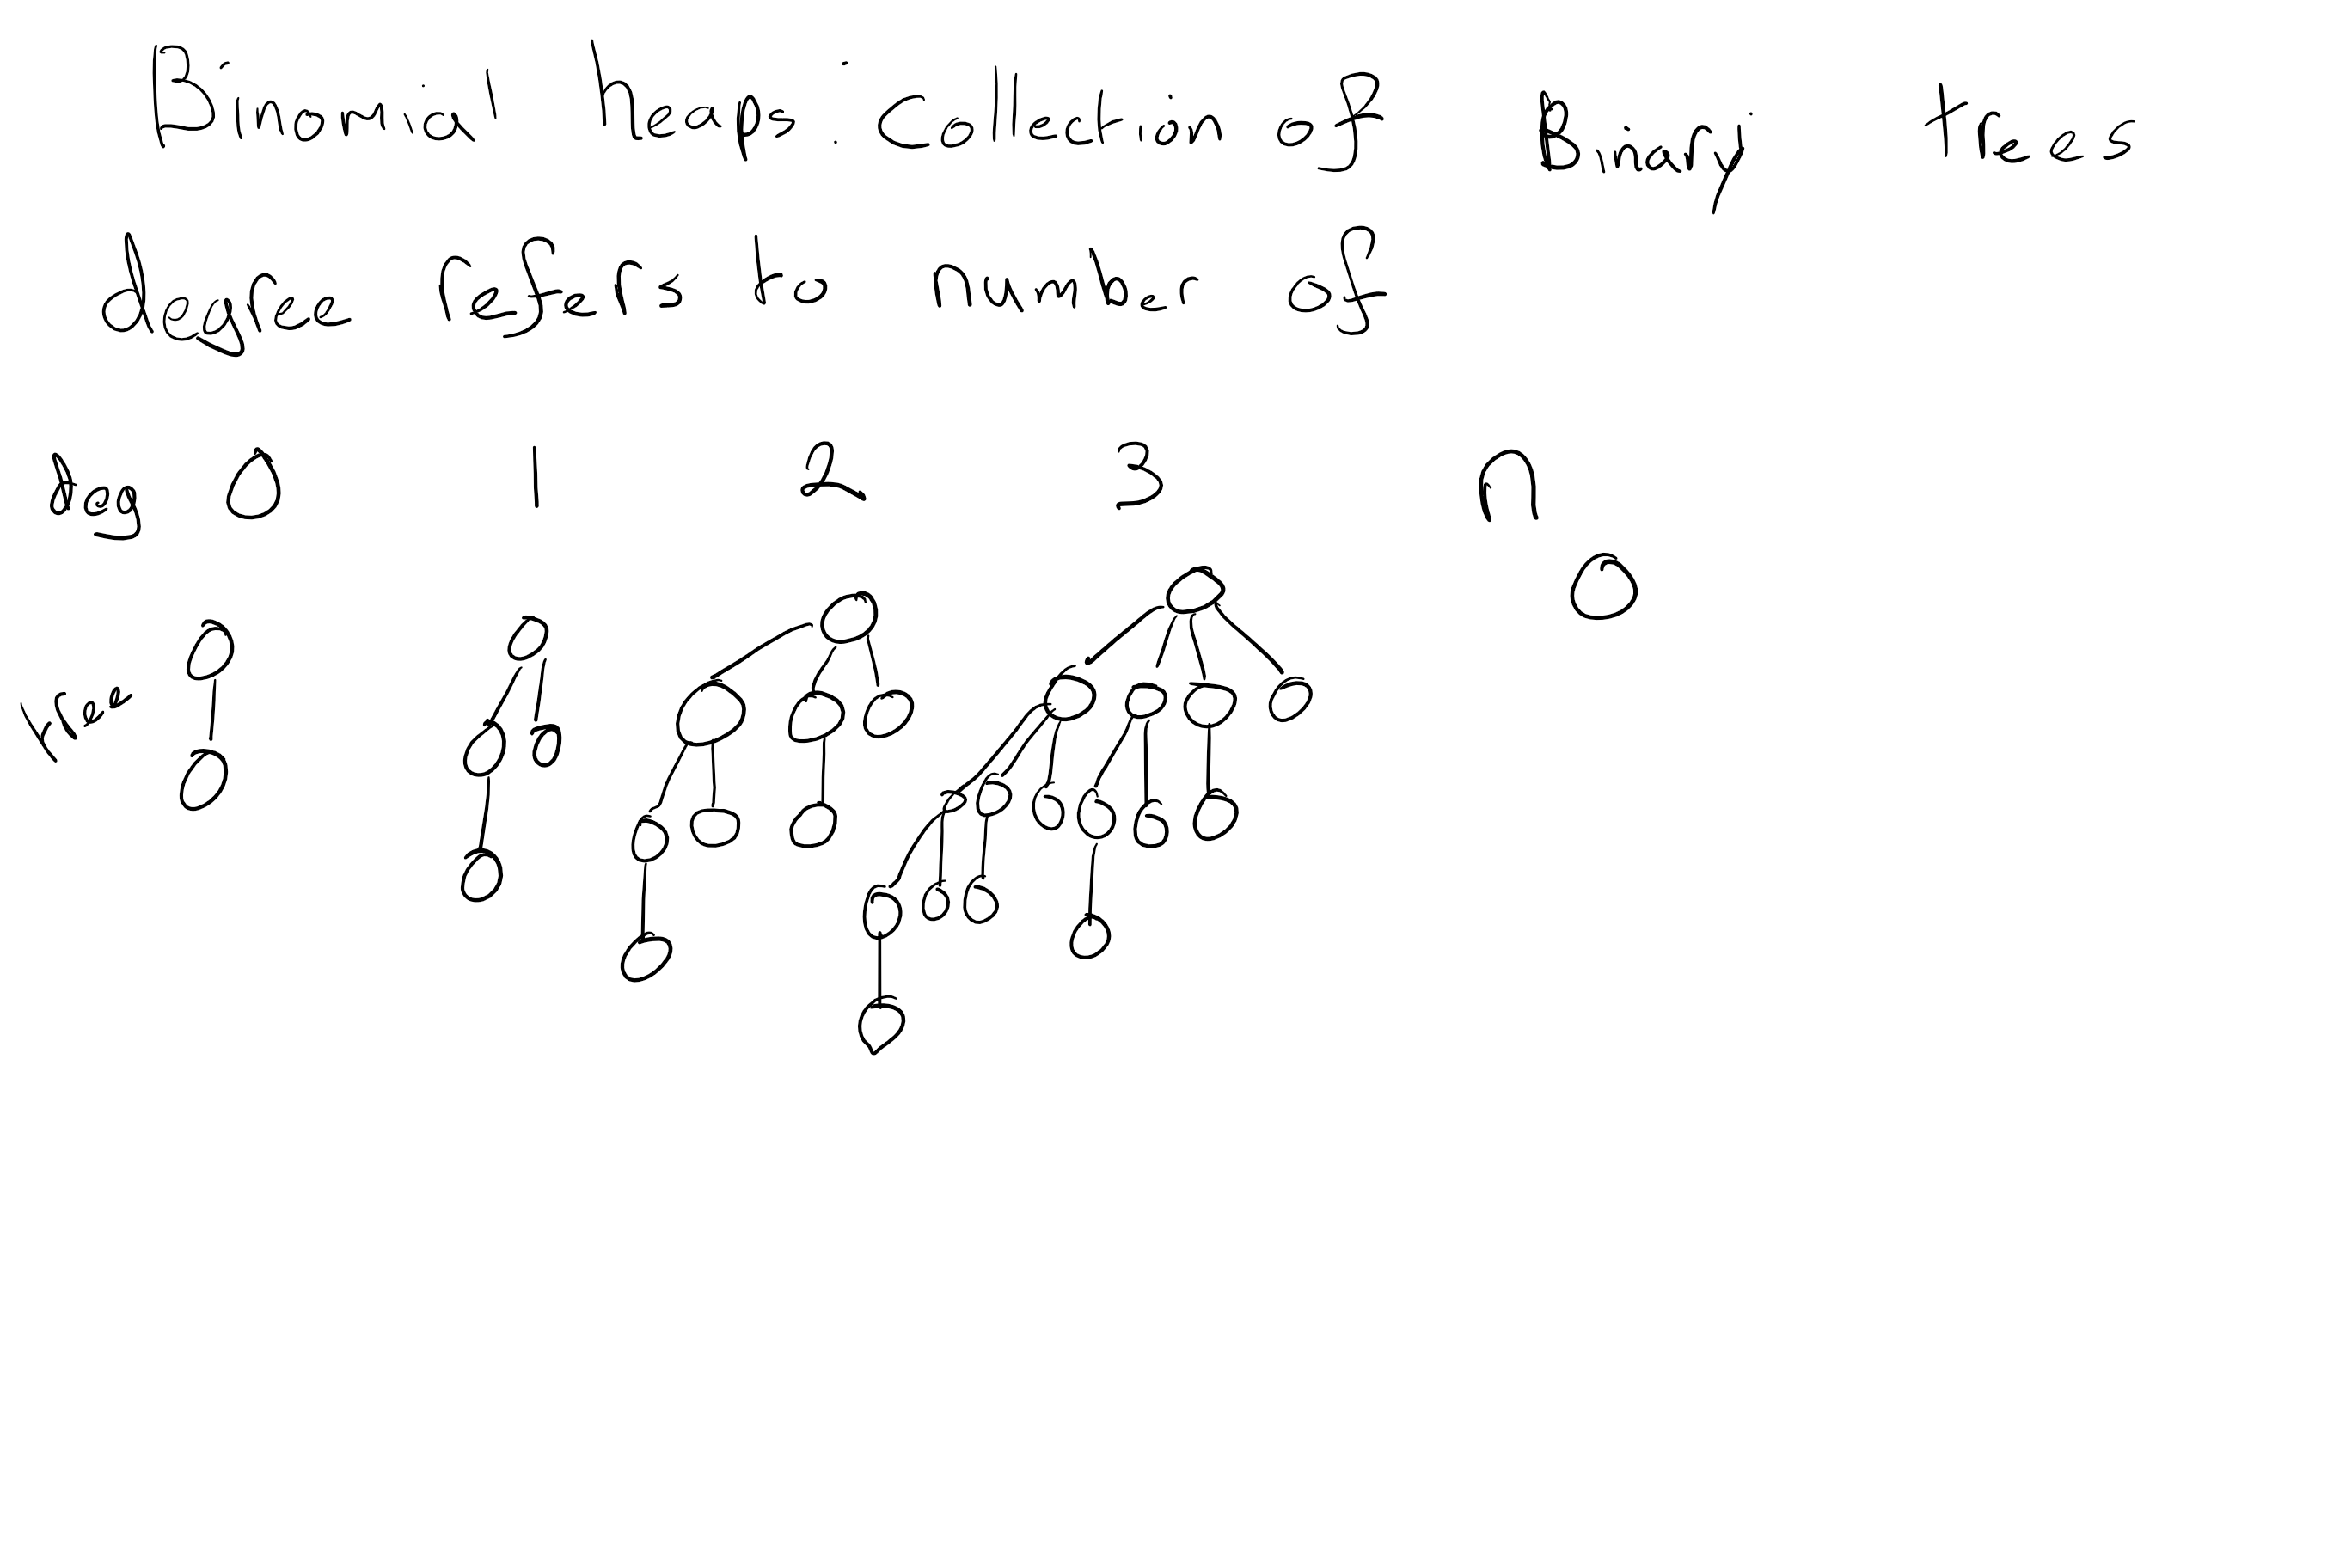 Binomial heaps: Collection of Binary trees
degree refers to number of
deg 0 1 2 3 n
tree